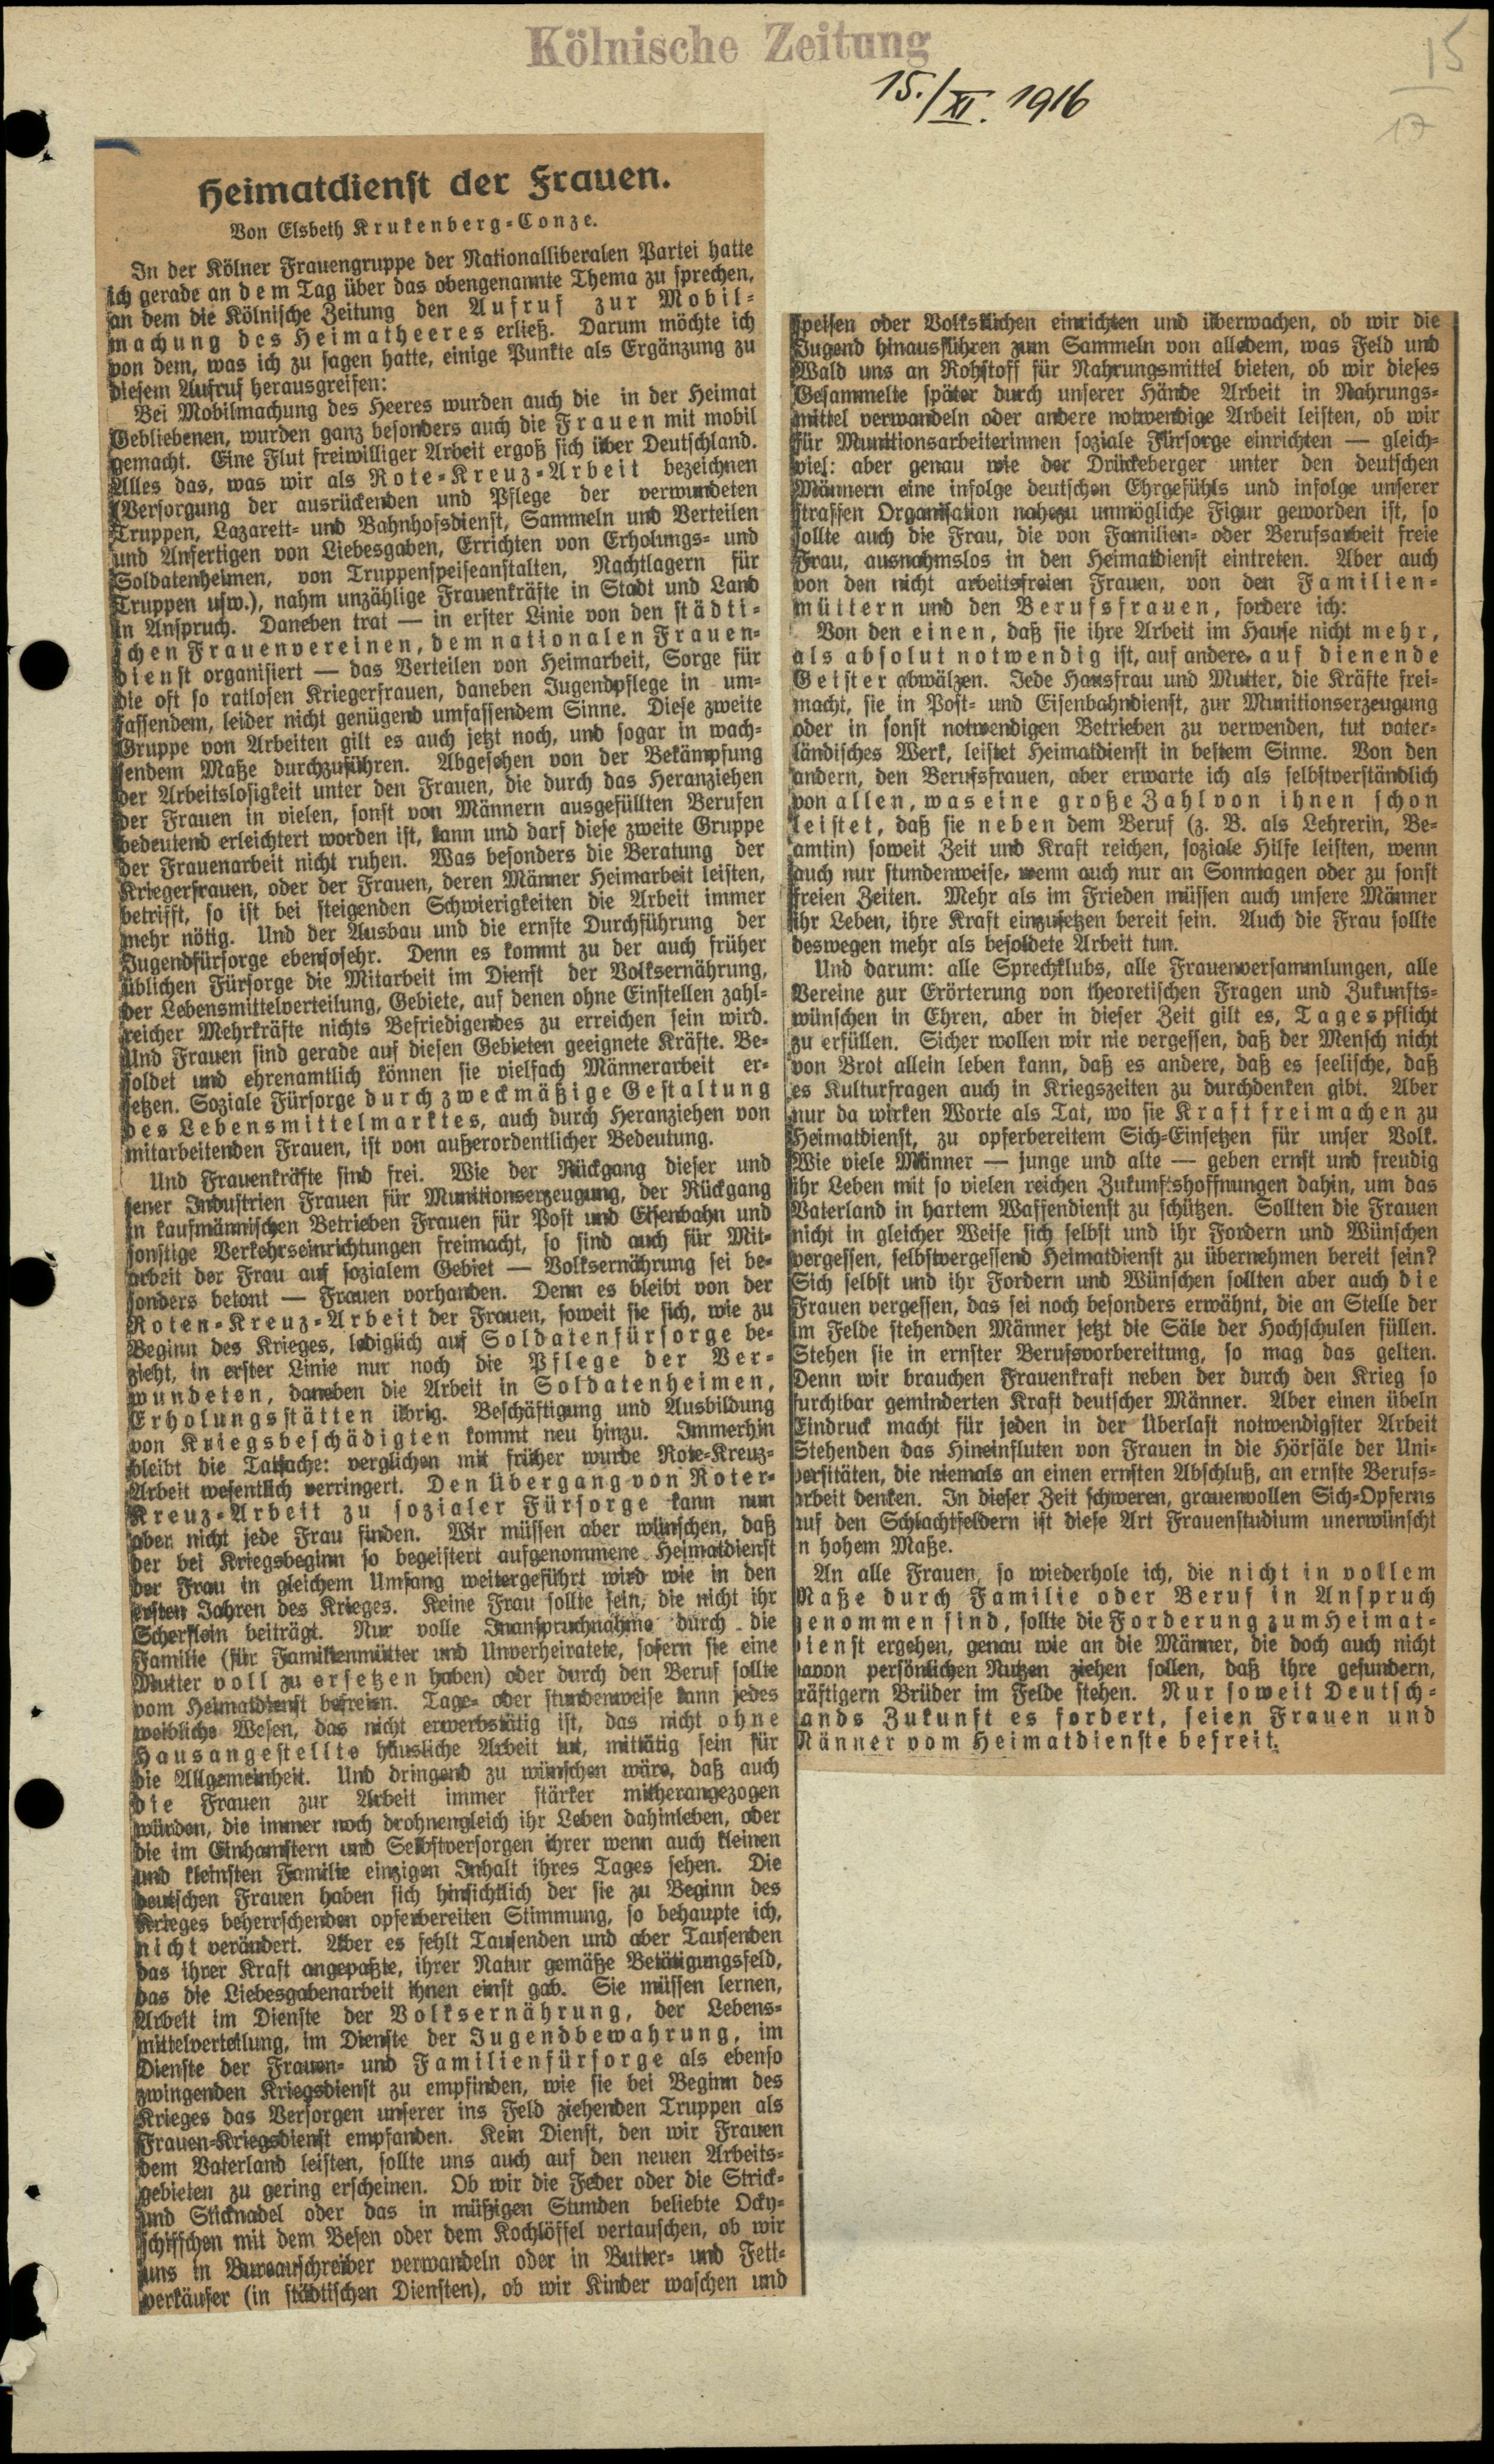 Kölnische Zeitung
15./XI. 1916
15
17
Heimatdienst der Frauen.
Von Elsbeth Krukenberg-Conze.
In der Kölner Frauengruppe der Nationalliberalen Partei hatte
ich gerade an dem Tag über das obengenannte Thema zu sprechen,
an dem die Kölnische Zeitung den Aufruf zur Mobil-
machung des Heimatheeres erließ. Darum möchte ich
von dem, was ich zu sagen hatte, einige Punkte als Ergänzung zu
diesem Aufruf herausgreifen:
Bei Mobilmachung des Heeres wurden auch die in der Heimat
Gebliebenen, wurden ganz besonders auch die Frauen mit mobil
gemacht. Eine Flut freiwilliger Arbeit ergoß sich über Deutschland.
Alles das, was wir als Rote-Kreuz-Arbeit bezeichnen
(Versorgung der ausrückenden und Pflege der verwundeten
Truppen, Lazarett- und Bahnhofsdienst, Sammeln und Verteilen
und Anfertigen von Liebesgaben, Errichten von Erholungs- und
Soldatenheimen, von Truppenspeiseanstalten, Nachtlagern für
Truppen usw.), nahm unzählige Frauenkräfte in Stadt und Land
in Anspruch. Daneben trat — in erster Linie von den städti-
schen Frauenvereinen, dem nationalen Frauen-
dienst organisiert — das Verteilen von Heimarbeit, Sorge für
die oft so ratlosen Kriegerfrauen, daneben Jugendpflege in um-
fassendem, leider nicht genügend umfassendem Sinne. Diese zweite
Gruppe von Arbeiten gilt es auch jetzt noch, und sogar in wach-
sendem Maße durchzuführen. Abgesehen von der Bekämpfung
der Arbeitslosigkeit unter den Frauen, die durch das Heranziehen
der Frauen in vielen, sonst von Männern ausgefüllten Berufen
bedeutend erleichtert worden ist, kann und darf diese zweite Gruppe
der Frauenarbeit nicht ruhen. Was besonders die Beratung der
Kriegerfrauen, oder der Frauen, deren Männer Heimarbeit leisten,
betrifft, so ist bei steigenden Schwierigkeiten die Arbeit immer
mehr nötig. Und der Ausbau und die ernste Durchführung der
Jugendfürsorge ebensosehr. Denn es kommt zu der auch früher
üblichen Fürsorge die Mitarbeit im Dienst der Volksernährung,
der Lebensmittelverteilung, Gebiete, auf denen ohne Einstellen zahl-
reicher Mehrkräfte nichts Befriedigendes zu erreichen sein wird.
Und Frauen sind gerade auf diesen Gebieten geeignete Kräfte. Be-
soldet und ehrenamtlich können sie vielfach Männerarbeit er-
setzen. Soziale Fürsorge durch zweckmäßige Gestaltung
des Lebensmittelmarktes, auch durch Heranziehen von
mitarbeitenden Frauen, ist von außerordentlicher Bedeutung.
Und Frauenkräfte sind frei. Wie der Rückgang dieser und
jener Industrien Frauen für Munitionserzeugung, der Rückgang
in kaufmännischen Betrieben Frauen für Post und Eisenbahn und
sonstige Verkehrseinrichtungen freimacht, so sind auch für Mit-
arbeit der Frau auf sozialem Gebiet — Volksernährung sei be-
sonders betont — Frauen vorhanden. Denn es bleibt von der
Roten-Kreuz-Arbeit der Frauen, soweit sie sich, wie zu
Beginn des Krieges, lediglich auf Soldatenfürsorge be-
zieht, in erster Linie nur noch die Pflege der Ver-
wundeten, daneben die Arbeit in Soldatenheimen,
Erholungsstätten übrig. Beschäftigung und Ausbildung
von Kriegsbeschädigten kommt neu hinzu. Immerhin
bleibt die Tatsache: verglichen mit früher wurde Rote-Kreuz-
Arbeit wesentlich verringert. Den Übergang von Roter-
Kreuz-Arbeit zu sozialer Fürsorge kann nun
aber nicht jede Frau finden. Wir müssen aber wünschen, daß
der bei Kriegsbeginn so begeistert aufgenommene Heimatdienst
der Frau in gleichem Umfang weitergeführt wird wie in den
ersten Jahren des Krieges. Keine Frau sollte sein, die nicht ihr
Scherflein beiträgt. Nur volle Inanspruchnahme durch die
Familie (für Familienmütter und Unverheiratete, sofern sie eine
Mutter voll zu ersetzen haben) oder durch den Beruf sollte
vom Heimatdienst befreien. Tage- oder stundenweise kann jedes
weibliche Wesen, das nicht erwerbstätig ist, das nicht ohne
Hausangestellte häusliche Arbeit tut, mittätig sein für
die Allgemeinheit. Und dringend zu wünschen wäre, daß auch
die Frauen zur Arbeit immer stärker mitherangezogen
würden, die immer noch drohnengleich ihr Leben dahinleben, oder
die im Einhamstern und Selbstversorgen ihrer wenn auch kleinen
und kleinsten Familie einzigen Inhalt ihres Tages sehen. Die
deutschen Frauen haben sich hinsichtlich der sie zu Beginn des
Krieges beherrschenden opferbereiten Stimmung, so behaupte ich,
nicht verändert. Aber es fehlt Tausenden und aber Tausenden
das ihrer Kraft angepaßte, ihrer Natur gemäße Betätigungsfeld,
das die Liebesgabenarbeit ihnen einst gab. Sie müssen lernen,
Arbeit im Dienste der Volksernährung, der Lebens-
mittelverteilung, im Dienste der Jugendbewahrung, im
Dienste der Frauen- und Familienfürsorge als ebenso
zwingenden Kriegsdienst zu empfinden, wie sie bei Beginn des
Krieges das Versorgen unserer ins Feld ziehenden Truppen als
Frauen-Kriegsdienst empfanden. Kein Dienst, den wir Frauen
dem Vaterland leisten, sollte uns auch auf den neuen Arbeits-
gebieten zu gering erscheinen. Ob wir die Feder oder die Strick-
und Sticknadel oder das in müßigen Stunden beliebte Ocky-
schiffchen mit dem Besen oder dem Kochlöffel vertauschen, ob wir
uns in Bureauschreiber verwandeln oder in Butter- und Fett-
verkäufer (in städtischen Diensten), ob wir Kinder waschen und
speisen oder Volksküchen einrichten und überwachen, ob wir die
Jugend hinausführen zum Sammeln von alledem, was Feld und
Wald uns an Rohstoff für Nahrungsmittel bieten, ob wir dieses
Gesammelte später durch unserer Hände Arbeit in Nahrungs-
mittel verwandeln oder andere notwendige Arbeit leisten, ob wir
für Munitionsarbeiterinnen soziale Fürsorge einrichten — gleich-
viel: aber genau wie der Drückeberger unter den deutschen
Männern eine infolge deutschen Ehrgefühls und infolge unserer
straffen Organisation nahezu unmögliche Figur geworden ist, so
sollte auch die Frau, die von Familien- oder Berufsarbeit freie
Frau, ausnahmslos in den Heimatdienst eintreten. Aber auch
von den nicht arbeitsfreien Frauen, von den Familien-
müttern und den Berufsfrauen, fordere ich:
Von den einen, daß sie ihre Arbeit im Hause nicht mehr,
als absolut notwendig ist, auf andere, auf dienende
Geister abwälzen. Jede Hausfrau und Mutter, die Kräfte frei-
macht, sie in Post- und Eisenbahndienst, zur Munitionserzeugung
oder in sonst notwendigen Betrieben zu verwenden, tut vater-
ländisches Werk, leistet Heimatdienst in bestem Sinne. Von den
andern, den Berufsfrauen, aber erwarte ich als selbstverständlich
von allen, was eine große Zahl von ihnen schon
leistet, daß sie neben dem Beruf (z. B. als Lehrerin, Be-
amtin) soweit Zeit und Kraft reichen, soziale Hilfe leisten, wenn
auch nur stundenweise, wenn auch nur an Sonntagen oder zu sonst
freien Zeiten. Mehr als im Frieden müssen auch unsere Männer
ihr Leben, ihre Kraft einzusetzen bereit sein. Auch die Frau sollte
deswegen mehr als besoldete Arbeit tun.
Und darum: alle Sprechklubs, alle Frauenversammlungen, alle
Vereine zur Erörterung von theoretischen Fragen und Zukunfts-
wünschen in Ehren, aber in dieser Zeit gilt es, Tagespflicht
zu erfüllen. Sicher wollen wir nie vergessen, daß der Mensch nicht
von Brot allein leben kann, daß es andere, daß es seelische, daß
es Kulturfragen auch in Kriegszeiten zu durchdenken gibt. Aber
nur da wirken Worte als Tat, wo sie Kraft freimachen zu
Heimatdienst, zu opferbereitem Sich-Einsetzen für unser Volk.
Wie viele Männer — junge und alte — geben ernst und freudig
ihr Leben mit so vielen reichen Zukunftshoffnungen dahin, um das
Vaterland in hartem Waffendienst zu schützen. Sollten die Frauen
nicht in gleicher Weise sich selbst und ihr Fordern und Wünschen
vergessen, selbstvergessend Heimatdienst zu übernehmen bereit sein?
Sich selbst und ihr Fordern und Wünschen sollten aber auch die
Frauen vergessen, das sei noch besonders erwähnt, die an Stelle der
im Felde stehenden Männer jetzt die Säle der Hochschulen füllen.
Stehen sie in ernster Berufsvorbereitung, so mag das gelten.
Denn wir brauchen Frauenkraft neben der durch den Krieg so
furchtbar geminderten Kraft deutscher Männer. Aber einen übeln
Eindruck macht für jeden in der Überlast notwendigster Arbeit
Stehenden das Hineinfluten von Frauen in die Hörsäle der Uni-
versitäten, die niemals an einen ernsten Abschluß, an ernste Berufs-
arbeit denken. In dieser Zeit schweren, grauenvollen Sich-Opferns
auf den Schlachtfeldern ist diese Art Frauenstudium unerwünscht
in hohem Maße.
An alle Frauen, so wiederhole ich, die nicht in vollem
Maße durch Familie oder Beruf in Anspruch
genommen sind, sollte die Forderung zum Heimat-
dienst ergehen, genau wie an die Männer, die doch auch nicht
davon persönlichen Nutzen ziehen sollen, daß ihre gesundern,
kräftigern Brüder im Felde stehen. Nur soweit Deutsch-
lands Zukunft es fordert, seien Frauen und
Männer vom Heimatdienste befreit.